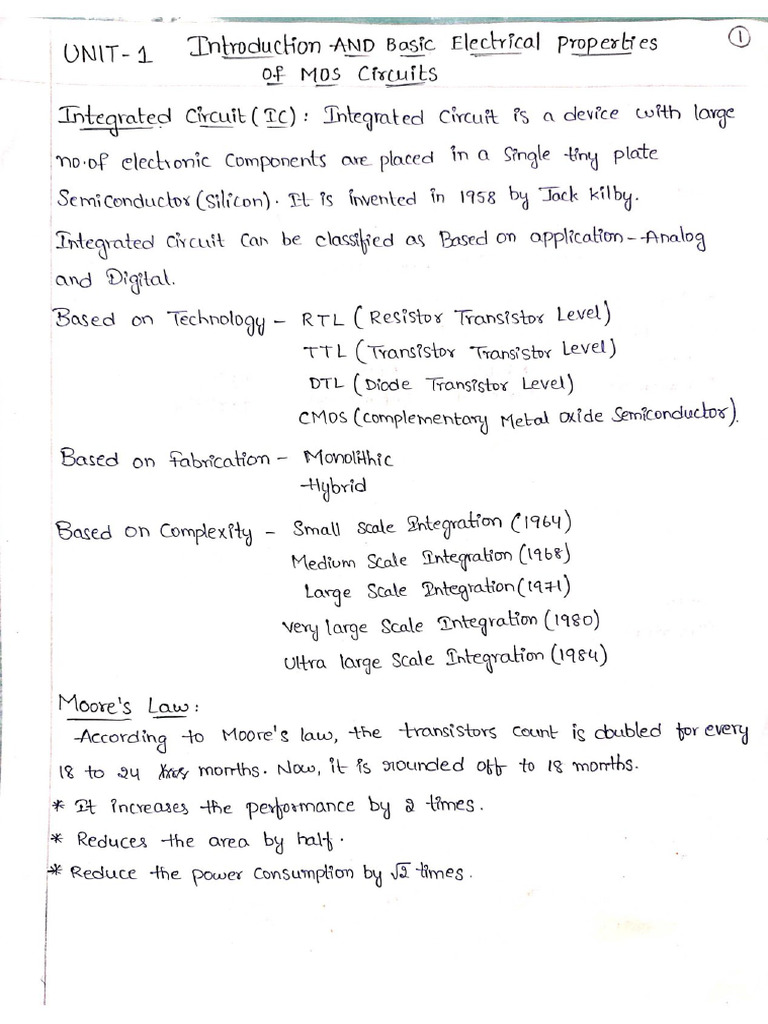 UNIT-1 Introduction AND Basic Electrical Properties ①
Of MOS Circuits
Integrated Circuit (IC): Integrated Circuit is a device with large
no. of electronic components are placed in a single tiny plate
Semiconductor (Silicon). It is invented in 1958 by Jack Kilby.
Integrated Circuit Can be classified as Based on application - Analog
and Digital.
Based on Technology - RTL (Resistor Transistor Level)
TTL (Transistor Transistor Level)
DTL (Diode Transistor Level)
CMOS (complementary Metal Oxide Semiconductor).
Based on fabrication - Monolithic
Hybrid
Based on Complexity - Small Scale Integration (1964)
Medium Scale Integration (1968)
Large Scale Integration (1971)
Very large Scale Integration (1980)
Ultra large Scale Integration (1984)
Moore's Law:
According to Moore's law, the transistors count is doubled for every
18 to 24 months. Now, it is rounded off to 18 months.
* It increases the performance by 2 times.
* Reduces the area by half.
* Reduce the power Consumption by √2 times.